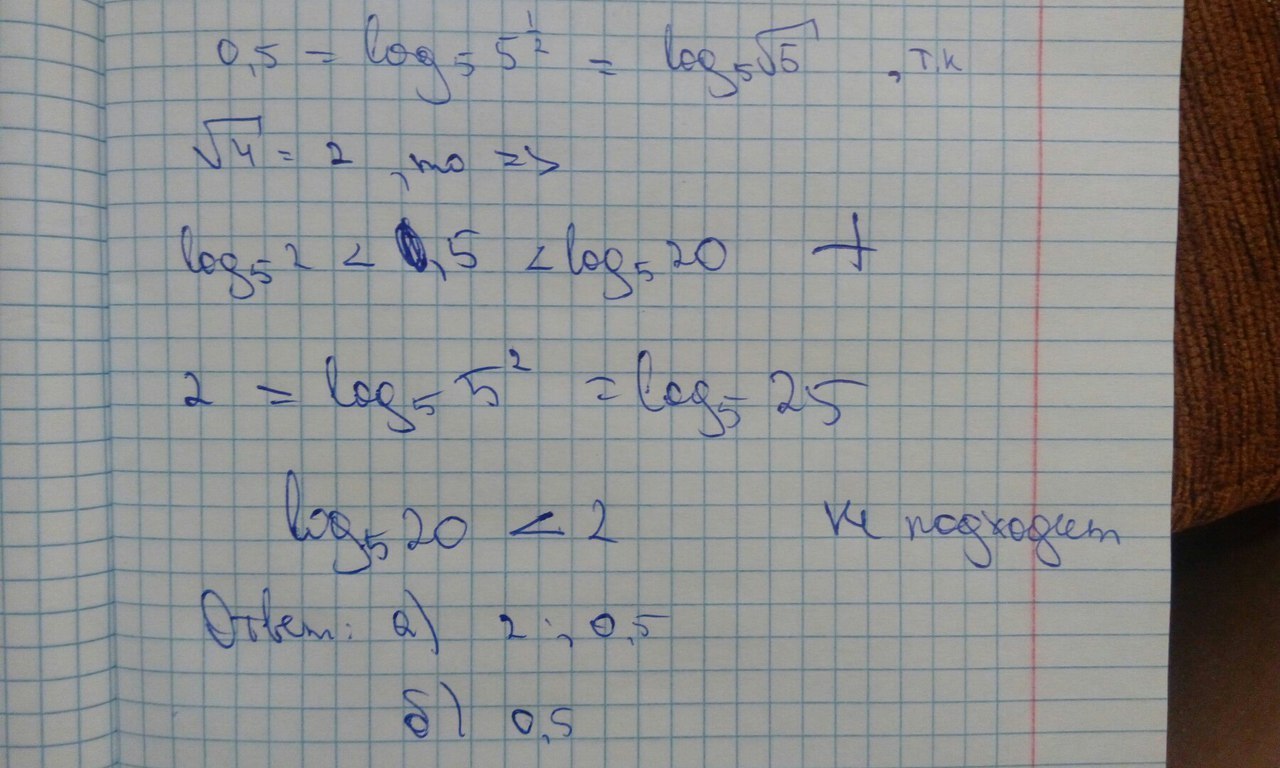 0,5 = log₅ 5^½ = log₅√5 , т.к
√4 = 2 , то =>
log₅2 < 0,5 < log₅20 +
2 = log₅ 5² = log₅ 25
log₅20 < 2 не подходит
Ответ: а) 2 ; 0,5
б) 0,5